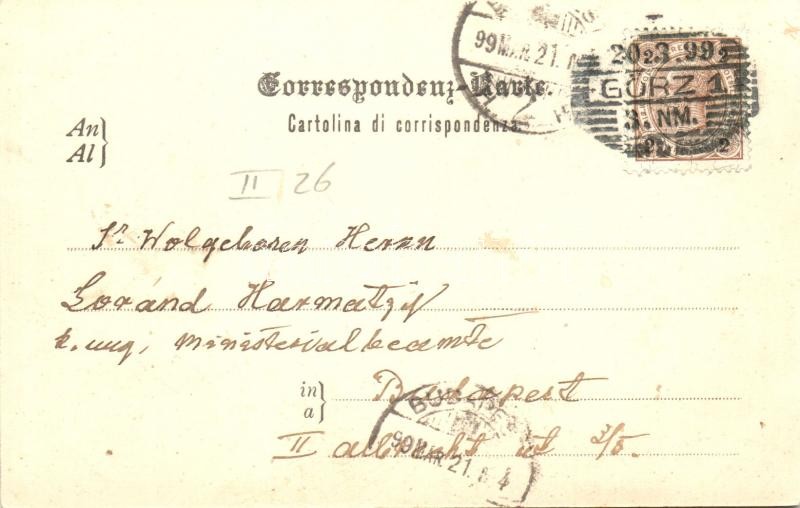 Correspondenz-Karte.
Cartolina di corrispondenza.
99 MAR. 21.
20.3.99
GÖRZ 1
3. NM.
2 2
An
Al
II 26
Sr Wolgeboren Herrn
Loránd Harmatzif
k. ung. Ministerialbeamte
in
a
Budapest
II albrecht út 3/b.
BUDAPEST
99 MAR. 21.
4